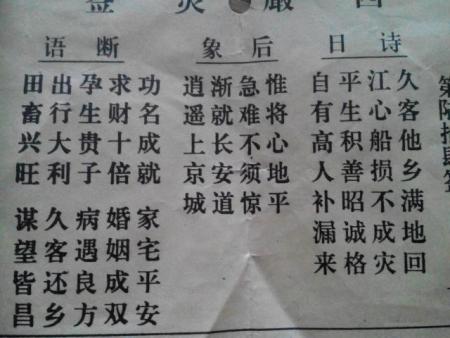 诗日
久客他乡满地回
江心船损不成灾
平生积善昭诚格
自有高人补漏来
后象
惟将心地平
急难不须惊
渐就长安道
逍遥上京城
断语
功名成就
求财十倍
孕生贵子
出行大利
田畜兴旺
家宅平安
婚姻成双
病遇良方
久客还乡
谋望皆昌